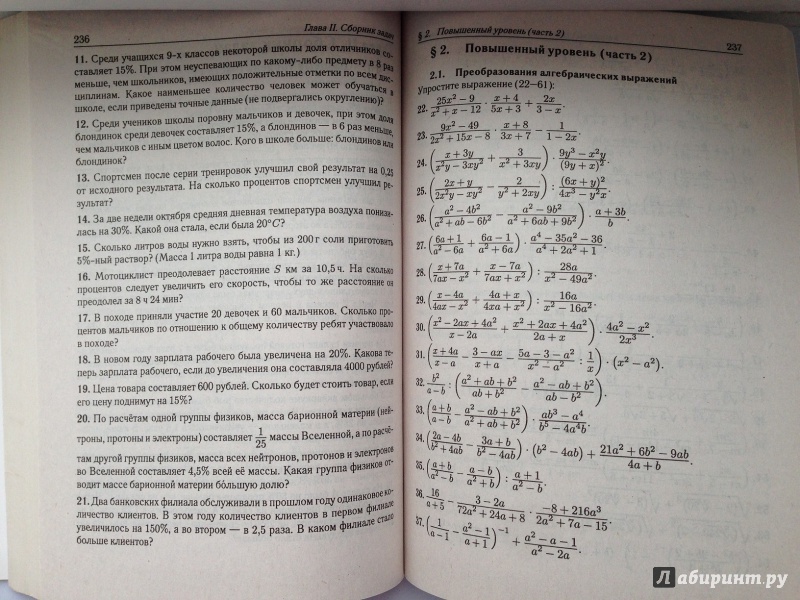 236
Глава II. Сборник задач
11. Среди учащихся 9-х классов некоторой школы доля отличников со-
ставляет 15%. При этом неуспевающих по какому-либо предмету в 8 раз
меньше, чем школьников, имеющих положительные отметки по всем дис-
циплинам. Какое наименьшее количество человек может обучаться в
школе, если приведены точные данные (не подвергались округлению)?
12. Среди учеников школы поровну мальчиков и девочек, при этом доля
блондинок среди девочек составляет 15%, а блондинов — в 6 раз меньше,
чем мальчиков с иным цветом волос. Кого в школе больше: блондинов или
блондинок?
13. Спортсмен после серии тренировок улучшил свой результат на 0,25
от исходного результата. На сколько процентов спортсмен улучшил ре-
зультат?
14. За две недели октября средняя дневная температура воздуха понизи-
лась на 30%. Какой она стала, если была 20°C?
15. Сколько литров воды нужно взять, чтобы из 200 г соли приготовить
5%-ный раствор? (Масса 1 литра воды равна 1 кг.)
16. Мотоциклист преодолевает расстояние S км за 10,5 ч. На сколько
процентов следует увеличить его скорость, чтобы то же расстояние он
преодолел за 8 ч 24 мин?
17. В походе приняли участие 20 девочек и 60 мальчиков. Сколько про-
центов мальчиков по отношению к общему количеству ребят участвовало
в походе?
18. В новом году зарплата рабочего была увеличена на 20%. Какова те-
перь зарплата рабочего, если до увеличения она составляла 4000 рублей?
19. Цена товара составляет 600 рублей. Сколько будет стоить товар, если
его цену поднимут на 15%?
20. По расчётам одной группы физиков, масса барионной материи (ней-
троны, протоны и электроны) составляет 1/25 массы Вселенной, а по расчё-
там другой группы физиков, масса всех нейтронов, протонов и электронов
во Вселенной составляет 4,5% всей её массы. Какая группа физиков от-
водит массе барионной материи бо́льшую долю?
21. Два банковских филиала обслуживали в прошлом году одинаковое ко-
личество клиентов. В этом году количество клиентов в первом филиале
увеличилось на 150%, а во втором — в 2,5 раза. В каком филиале стало
больше клиентов?
§ 2. Повышенный уровень (часть 2)
237
§ 2. Повышенный уровень (часть 2)
2.1. Преобразования алгебраических выражений
Упростите выражение (22—61):
22. (25x² − 9)/(x² + x − 12) · (x + 4)/(5x + 3) + 2x/(3 − x).
23. (9x² − 49)/(2x² + 15x − 8) · (x + 8)/(3x + 7) − 1/(1 − 2x).
24. ((x + 3y)/(x²y − 3xy²) + 3/(x² + 3xy)) · (9y³ − x²y)/(9y + x)².
25. ((2x + y)/(2x²y − xy²) − 2/(y² + 2xy)) : (6x + y)²/(4x³ − y²x).
26. ((a² − 4b²)/(a² + ab − 6b²) − (a² − 9b²)/(a² + 6ab + 9b²)) · (a + 3b)/b.
27. ((6a + 1)/(a² − 6a) + (6a − 1)/(a² + 6a)) · (a⁴ − 35a² − 36)/(a⁴ + 2a² + 1).
28. ((x + 7a)/(7ax − x²) + (x − 7a)/(7ax + x²)) : 28a/(x² − 49a²).
29. ((x − 4a)/(4ax − x²) + (4a + x)/(4xa + x²)) : 16a/(x² − 16a²).
30. ((x² − 2ax + 4a²)/(x − 2a) + (x² + 2ax + 4a²)/(2a + x)) · (4a² − x²)/(2x³).
31. ((x + 4a)/(x − a) − (3 − ax)/(x + a) − (5a − 3 − a²)/(x² − a²) : 1/x) · (x² − a²).
32. b²/(a − b) : ((a² + ab + b²)/(ab + b²) − (a² − ab + b²)/(ab − b²)).
33. ((a + b)/(a − b) − (a² − ab + b²)/(a² + ab + b²)) · (ab³ − a⁴)/(b⁵ − 4a⁴b).
34. ((2a − 4b)/(b² + 4ab) − (3a + b)/(b² − 4ab)) · (b² − 4ab) + (21a² + 6b² − 9ab)/(4a + b).
35. ((a + b)/(a² − b) − (a − b)/(a² + b)) : (a + 1)/(a² − b).
36. 16/(a + 5) − (3 − 2a)/(72a² + 24a + 8) · (−8 + 216a³)/(2a² + 7a − 15).
37. (1/(a − 1) − (a² − 1)/(a + 1))⁻¹ + (a² − a − 1)/(a² − 2a).
Лабиринт.ру